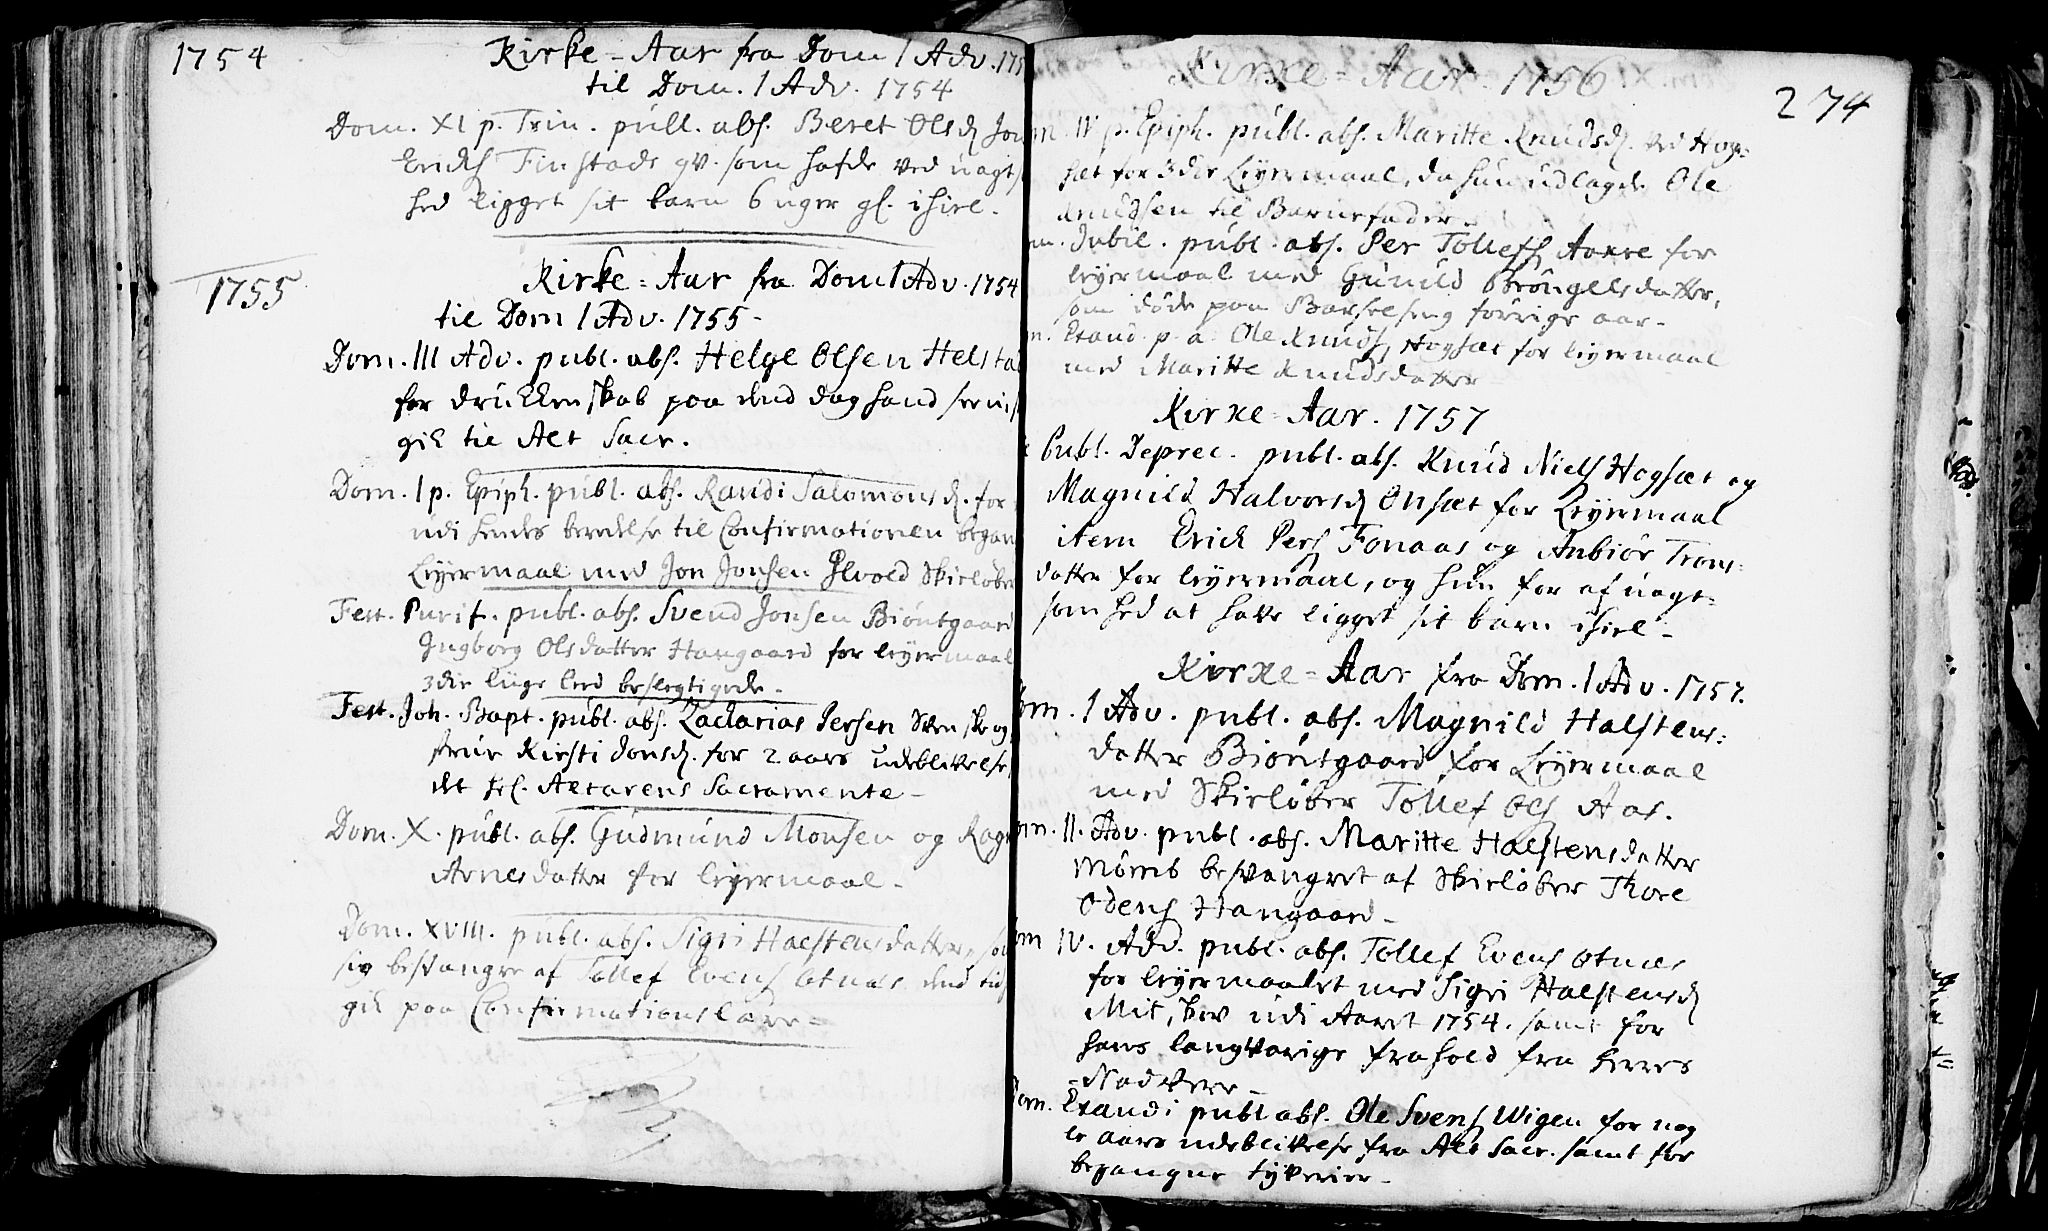 1754
Kirke-Aar fra Dom 1 Adv. 175
til Dom. 1 Adv. 1754
Dom. XI p. Trin. publ. abs. Beret Olsd Jon
Erichs Finstads qv. som hafde ved uagt
hed ligget sit barn 6 uger gl. ihiel.
1755
Kirke-Aar fra Dom 1 Adv. 1754
til Dom 1 Adv. 1755-
Dom. III Adv. publ. abs. Helge Olsen Helsta
for drukkenskab paa dend dag hand
gik til Alt Sacr.
Dom. 1 p. Epiph. publ. abs. Randi Salomonsd. for
udi hendes beredelse til Confirmationen began
Leyermaal med Jon Jonsen Skieløber
Fest. Purif. publ. abs. Svend Jonsen Biöntgaard
Ingborg Olsdatter Haugaard for leyermaal
3die liige leed beslegtigede-
Fest. Joh. Bapt. publ. abs. Zacharias Persen Svenske og
strue Kirsti Jonsd. for 2 aars udeblivelse
det hel. Altarens Sacramente-
Dom. X. publ. abs. Gudmund Monsen og Rag
Arnesdatter for leyermaal-
Dom. XVIII. publ. abs. Sigri Halstensdatter, so
sig besvangre af Tollef Evens Otnæs dend tid
gik paa Confirmations lære-
Kirke-Aar. 1756
274
m. IV p. Epiph. publ. abs. Maritte Knudsd. ved Hog=
sæt for 3die Leyermaal, da hun udlagde Ole
Knudsen til Barnefader-
m. Jubil. publ. abs. Per Tollefs Aakre for
leyermaal med Gunild Bröngelsdatter,
som döde paa Barselseng forrige aar-
n. Exaud. p. a. Ole Knuds Hogsæt for leyermaal
med Maritte Knudsdatter
Kirke-Aar. 1757
Publ. Deprec. publ. abs. Knud Niels Hogsæt og
Magnild Halvorsd Onsæt for Leyermaal
item Erich Pers Fonaas og Anbiör Trons=
datter for leyermaal, og hun for af uagt=
somhed at have ligget sit barn ihiel-
Kirke-Aar fra Dom. 1 Adv. 1757.
Dom. 1 Adv. publ. abs. Magnild Halstens=
datter Biöntgaard for Leyermaal
med Skieløber Tollef Ols Aas.
om. II. Adv. publ. abs. Maritte Halstensdatter
Mömb besvangret af Skieløber Thore
Odens Haugaard-
om IV. Adv. publ. abs. Tollef Evens Otnæs
for leyermaalet med Sigri Halstensd
Mit, skev udi Aaret 1754. samt for
hans langvarige frahold fra Herrens
Nadvere-
Dom. Exaudi publ abs. Ole Svens Wigen for nog
le aars udeblivelse fra Alt Sacr. samt for
begangne tyverier-